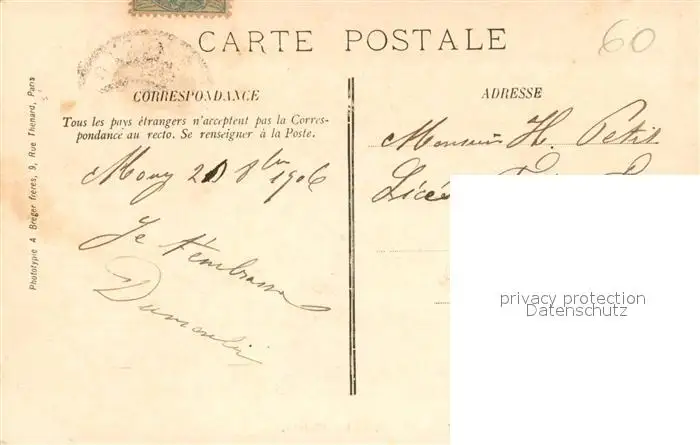 CARTE POSTALE
60
CORRESPONDANCE
Tous les pays étrangers n'acceptent pas la Corres-
pondance au recto. Se renseigner à la Poste.
Mouy 20 8bre 1906
Je t'embrasse
ADRESSE
Monsieur H. Petit
Phototypie A Breger frères, 9, Rue Thenard, Paris
privacy protection
Datenschutz